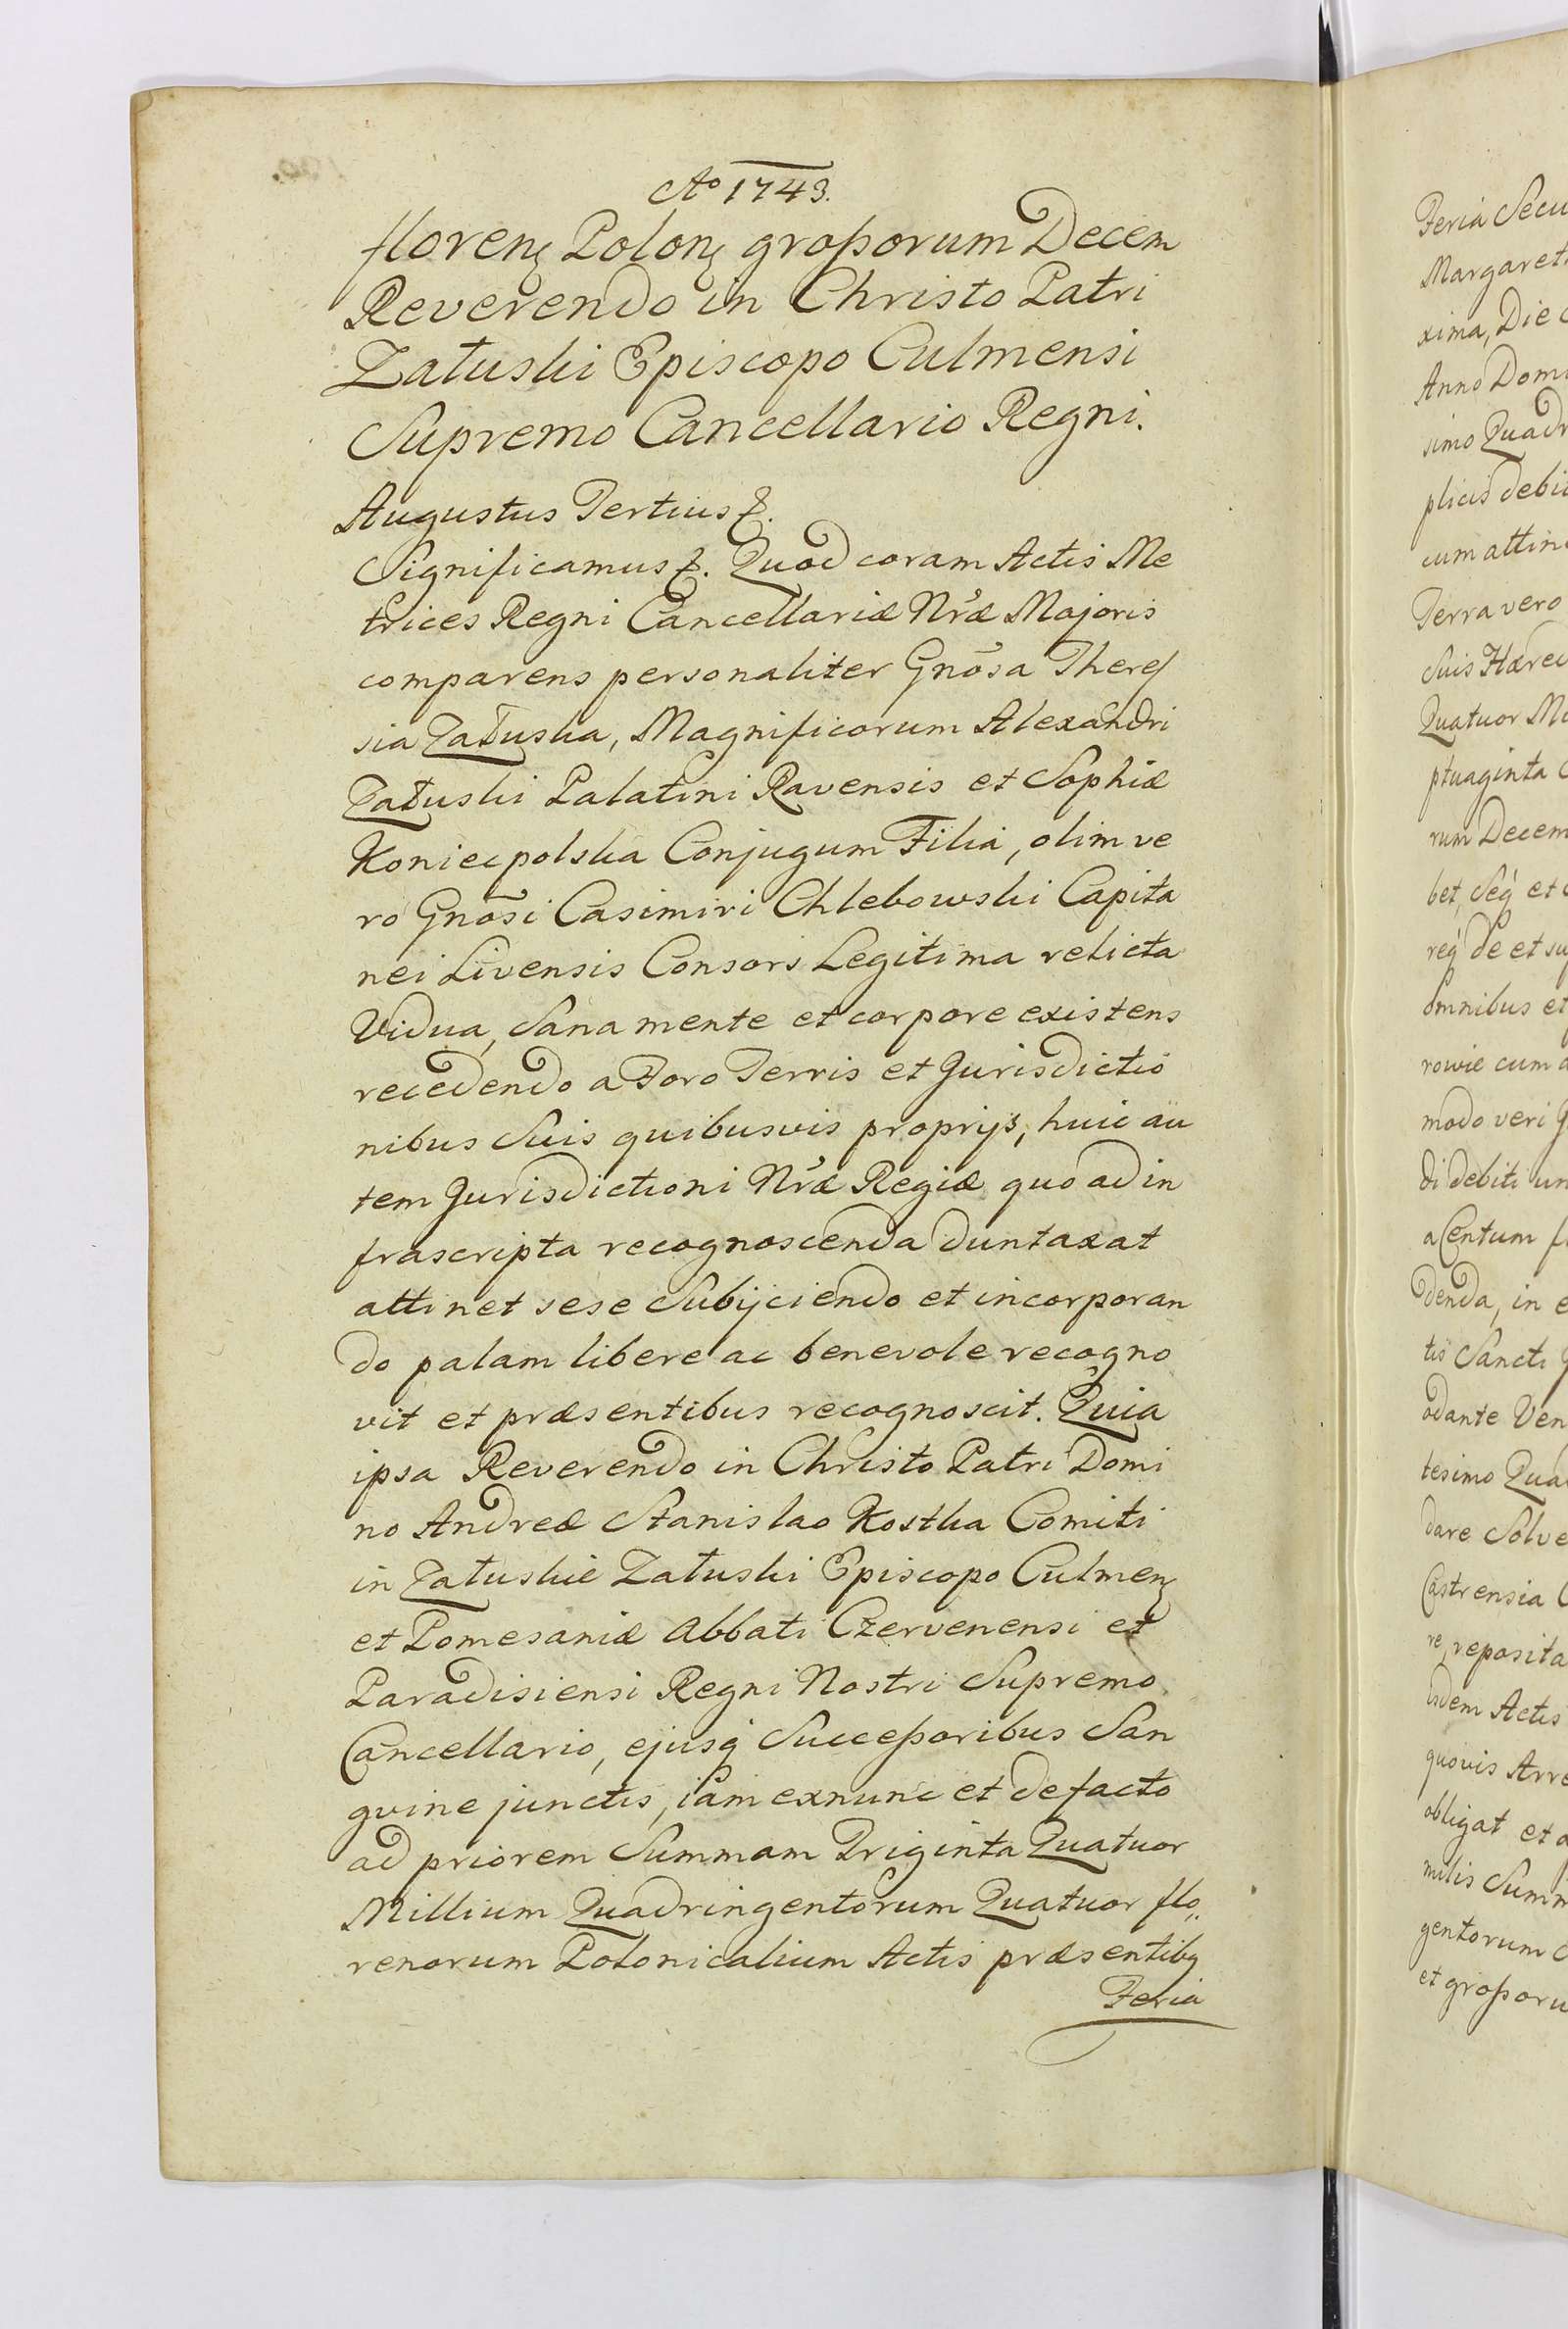 Aº 1743.
floren: Polon: groszorum Decem
Reverendo in Christo Patri
Załuski Episcopo Culmensi
Supremo Cancellario Regni.
Augustus Tertius &.
Significamus &. Quod coram Actis Me
trices Regni Cancellariæ Nræ Majoris
comparens personaliter Gnosa There/
sia Załuska, Magnificorum Alexandri
Załuski Palatini Ravensis et Sophiæ
Koniecpolska Conjugum Filia, olim ve
ro Gnosi Casimiri Chlebowski Capita
nei Livensis Consors Legitima relicta
Vidua, Sana mente et corpore existens
recedendo a Foro Terris et Jurisdictio
nibus Suis quibusvis proprijs, huic au
tem Jurisdictioni Nræ Regiæ quo ad in
frascripta recognoscenda duntaxat
attinet sese Subijciendo et incorporan
do palam libere ac benevole recogno
vit et præsentibus recognoscit. Quia
ipsa Reverendo in Christo Patri Domi
no Andreæ Stanislao Kostka Comiti
in Załuskie Załuski Episcopo Culmen:
et Pomesaniæ Abbati Czervenensi et
Paradisiensi Regni Nostri Supremo
Cancellario, ejusq Succeßoribus San
gvine junctis, iam exnunc et de facto
ad priorem Summam Triginta Quatuor
Millium Quadringentorum Quatuor flo„
renorum Polonicalium Actis præsentibq
Feria
Feria Secu
Margaret
xima, Die
Anno Domi
simo Quadr
plicis debi
cum attin
Terra vero
Suis Hæred
Quatuor Mi
ptuaginta
rum Decem
bet, Seq et
req de et su
omnibus et
rowie cum a
modo veri
di debiti un
a Centum fl
denda, in e
tis Sancti
odante Ven
tesimo Qua
dare Solve
Castrensia
re, reposita
isdem Actis
quovis Arre
obligat et a
milis Summ
gentorum
et groszoru